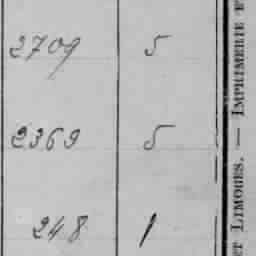 2709 5
2369 5
248 1
ET LIMOGES. — IMPRIMERIE ET